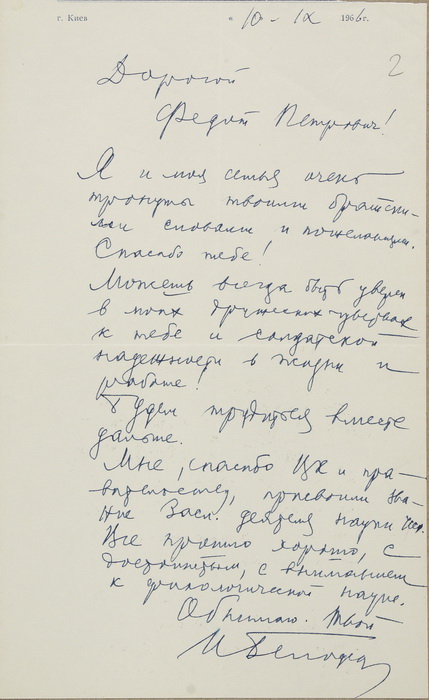 г. Киев « 10 - IX 1966 г.
2
Дорогой
Федот Петрович!
Я и моя семья очень
тронуты твоими братски-
ми словами и пожеланиями.
Спасибо тебе!
Можешь всегда быть уверен
в моих дружеских чувствах
к тебе и солдатской
надежности в жизни и
работе!
Будем трудиться вместе
дальше.
Мне, спасибо ЦК и пра-
вительству, присвоили зва-
ние Засл. деятеля науки
Все прошло хорошо, с
достоинством, с вниманием
к филологической науке.
Обнимаю. Твой
И Белодед